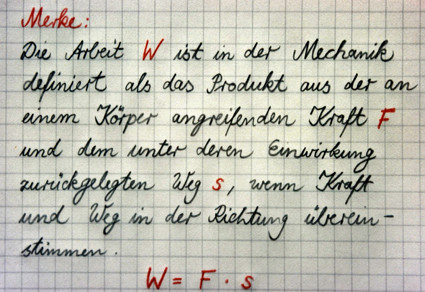 Merke:
Die Arbeit W ist in der Mechanik
definiert als das Produkt aus der an
einem Körper angreifenden Kraft F
und dem unter deren Einwirkung
zurückgelegten Weg s, wenn Kraft
und Weg in der Richtung überein-
stimmen.
W = F · s